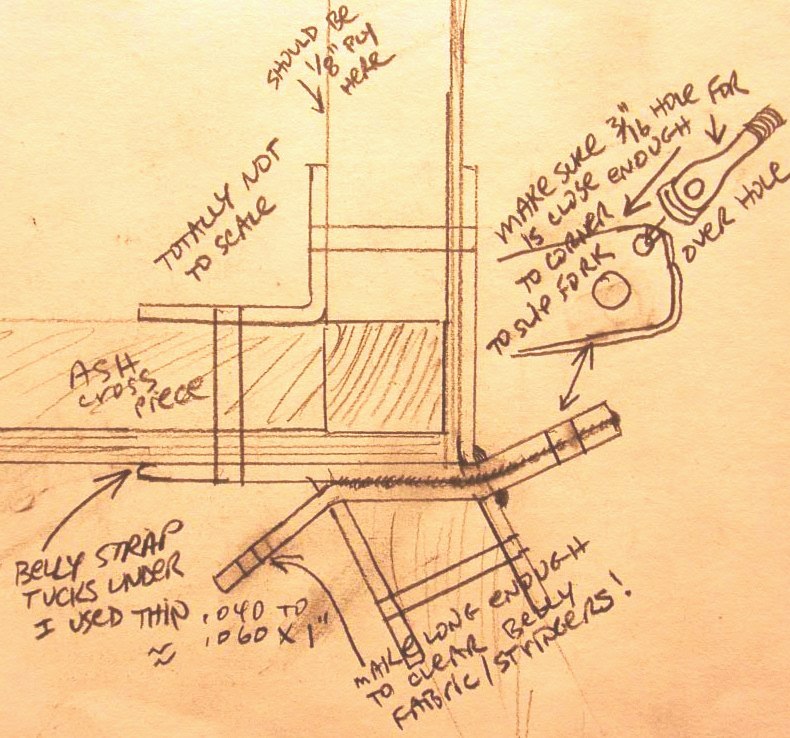 SHOULD BE
1/8" PLY
HERE
TOTALLY NOT
TO SCALE
MAKE SURE 3/16" HOLE FOR
IS CLOSE ENOUGH
TO CORNER
TO SLIP FORK
OVER HOLE
ASH
CROSS
PIECE
BELLY STRAP
TUCKS UNDER
I USED THIN .040 TO
≈ .060 X 1"
MAKE LONG ENOUGH
TO CLEAR BELLY
FABRIC/STRINGERS!